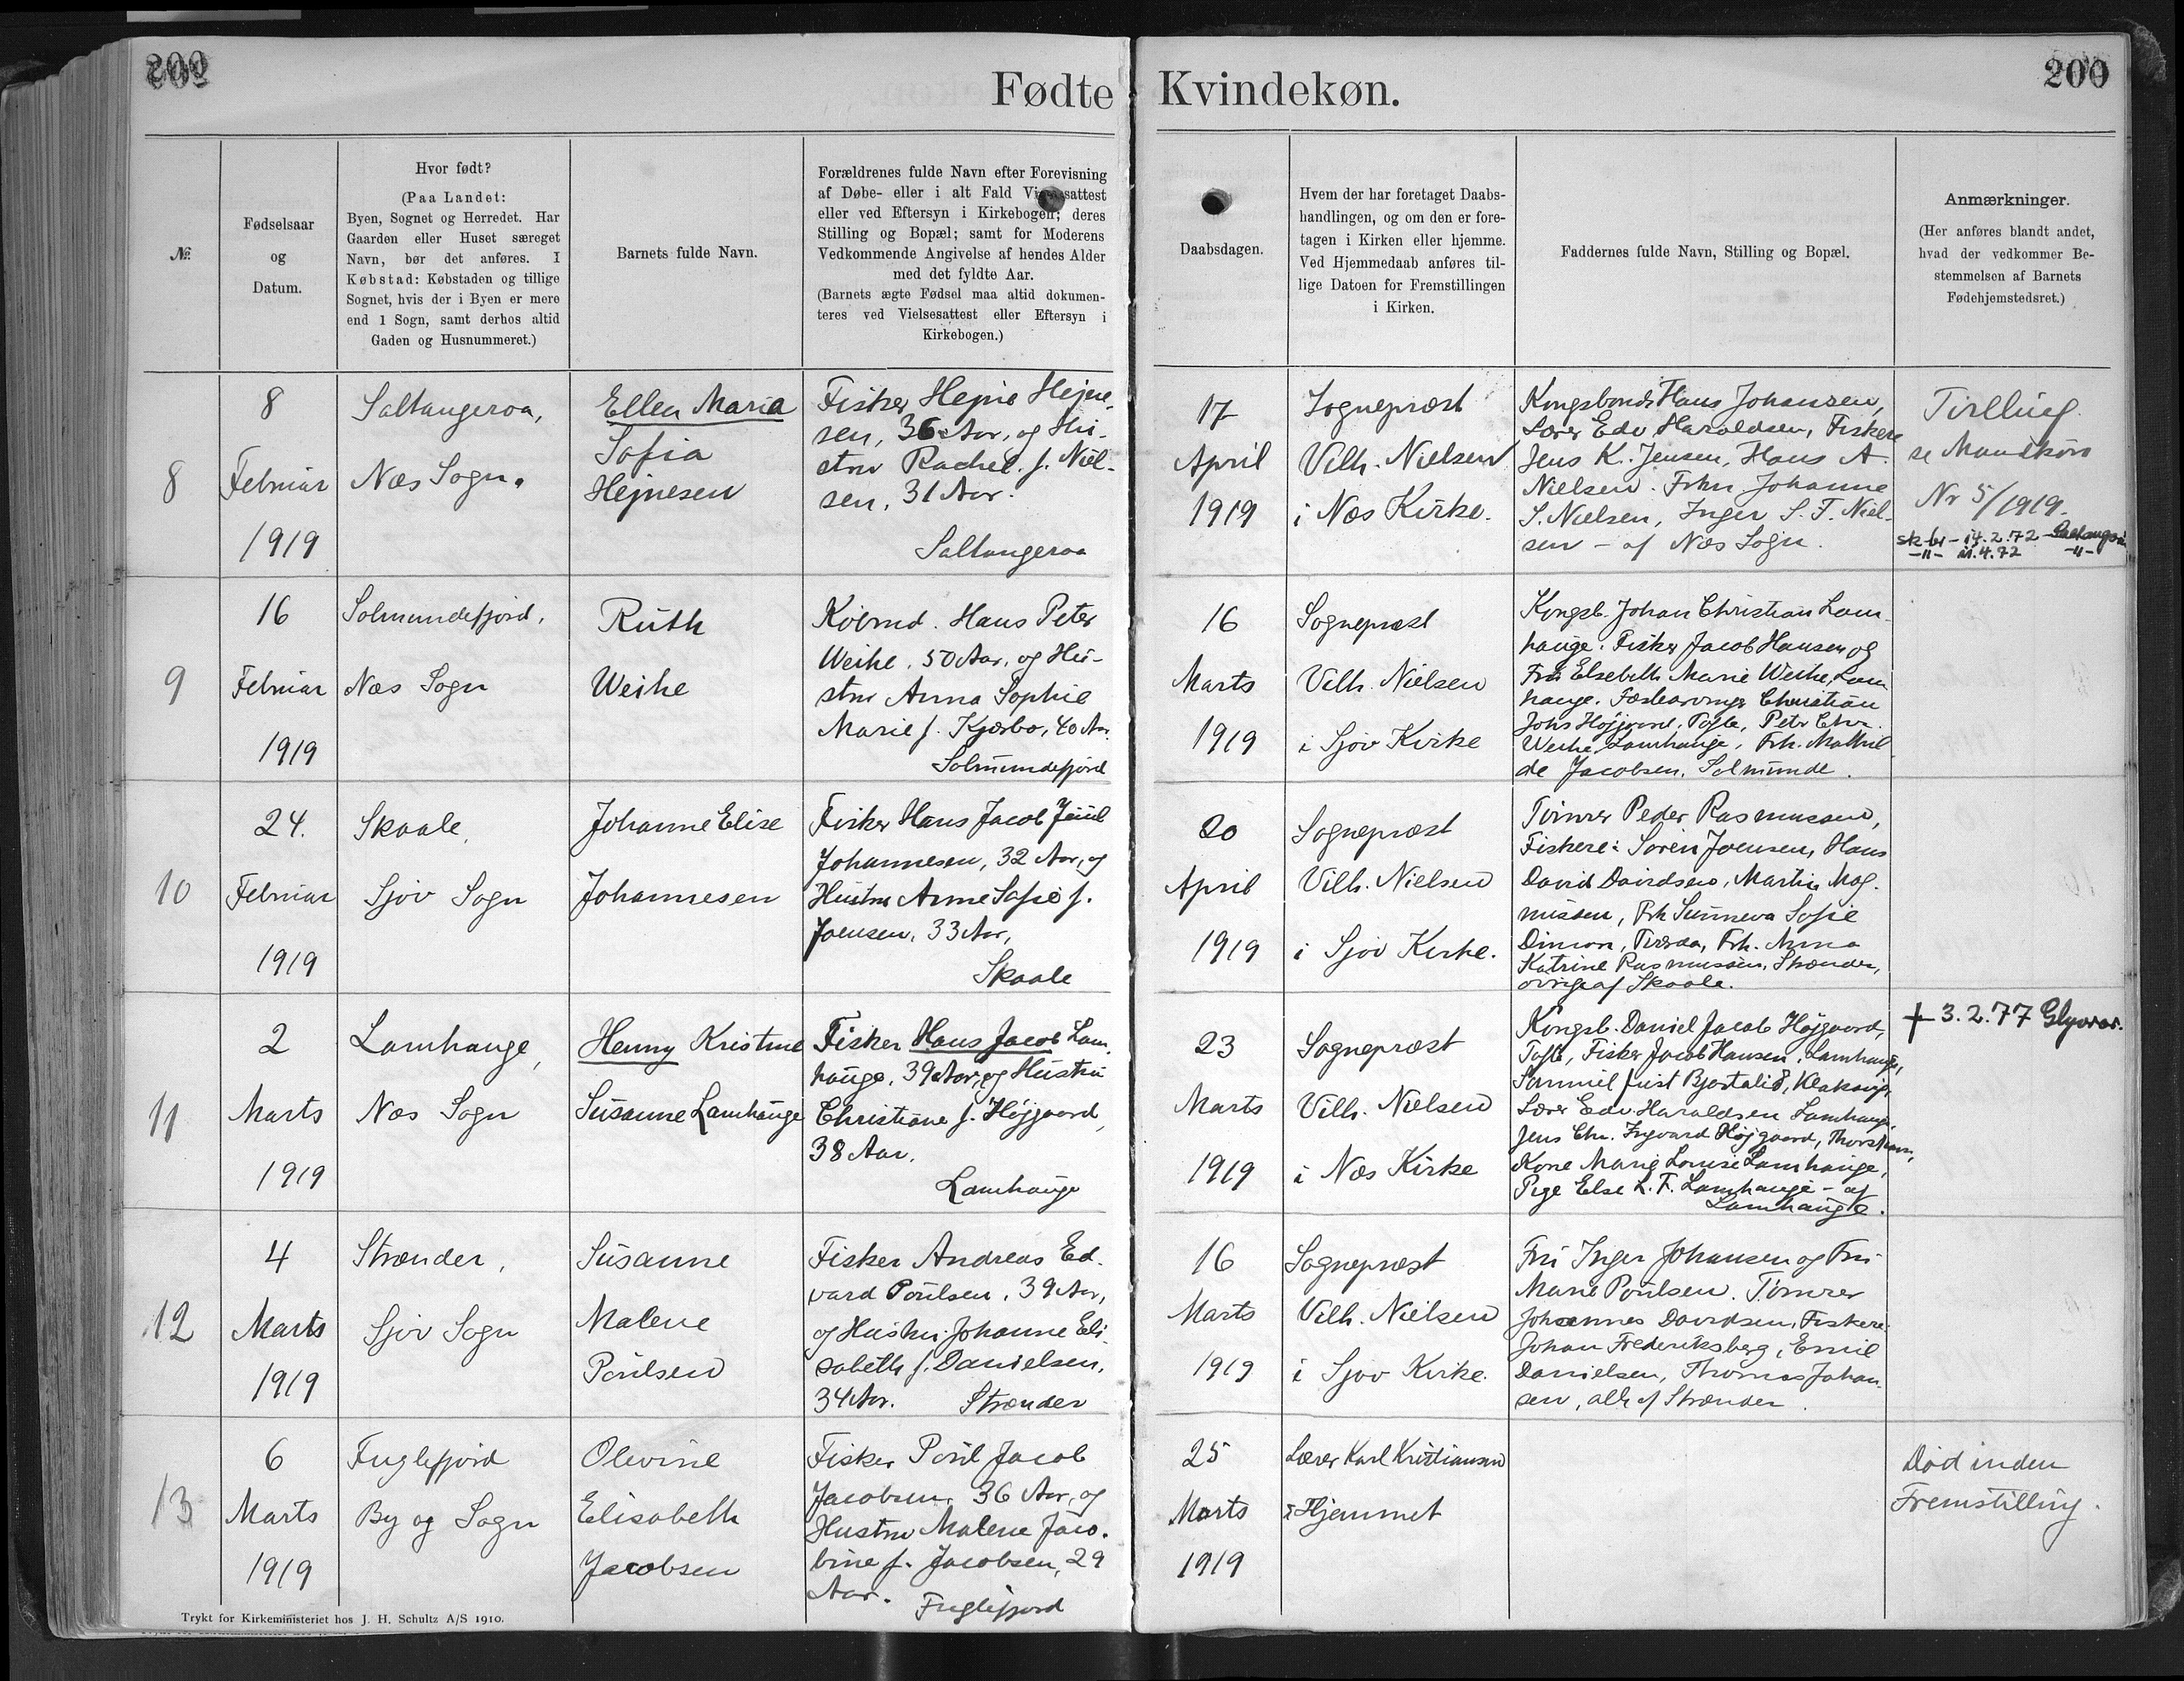 200
Fødte Kvindekøn.
200
№
Fødselsaar
og
Datum.
Hvor født?
(Paa Landet:
Byen, Sognet og Herredet. Har
Gaarden eller Huset særeget
Navn, bør det anføres. I
Købstad: Købstaden og tillige
Sognet, hvis der i Byen er mere
end 1 Sogn, samt derhos altid
Gaden og Husnummeret.)
Barnets fulde Navn.
Forældrenes fulde Navn efter Forevisning
af Døbe- eller i alt Fald Vielsesattest
eller ved Eftersyn i Kirkebogen; deres
Stilling og Bopæl; samt for Moderens
Vedkommende Angivelse af hendes Alder
med det fyldte Aar.
(Barnets ægte Fødsel maa altid dokumen-
teres ved Vielsesattest eller Eftersyn i
Kirkebogen.)
Daabsdagen.
Hvem der har foretaget Daabs-
handlingen, og om den er fore-
tagen i Kirken eller hjemme.
Ved Hjemmedaab anføres til-
lige Datoen for Fremstillingen
i Kirken.
Faddernes fulde Navn, Stilling og Bopæl.
Anmærkninger.
(Her anføres blandt andet,
hvad der vedkommer Be-
stemmelsen af Barnets
Fødehjemstedsret.)
8
8
Februar
1919
Saltangeraa,
Næs Sogn.
Ellen Maria
Sofia
Hejnesen
Fisker Hejne Hejne-
sen, 36 Aar, og Hu-
stru Rachel f. Niel-
sen, 31 Aar.
Saltangeraa
17
April
1919
Sognepræst
Vilh. Nielsen
i Næs Kirke.
Kongsbonde Hans Johansen,
Lærer Edv. Haraldsen, Fiskere
Jens K. Jensen, Hans A.
Nielsen. Frkn Johanne
S. Nielsen, Inger S. F. Niel-
sen - af Næs Sogn.
Tvilling
se Mandkøn
Nr 5/1919.
sk-br - 14.2.72
-"- 11.4.72 -"-
9
16
Februar
1919
Solmundefjord,
Næs Sogn
Ruth
Weihe
Købmd. Hans Peter
Weihe, 50 Aar, og Hu-
stru Anna Sophie
Marie f. Kjærbo, 40 Aar.
Solmundefjord
16
Marts
1919
Sognepræst
Vilh. Nielsen
i Sjov Kirke
Kongsb. Johan Christian Lam-
hauge. Fisker Jacob Hansen og
Fru Elsebeth Marie Weihe, Lam
hauge. Christian
Johs Højgaard, Tofte, Peter Chr.
Weihe, Lamhauge, Frk. Mathil
de Jacobsen, Solmunde.
10
24.
Februar
1919
Skaale,
Sjov Sogn
Johanne Elise
Johannesen
Fisker Hans Jacob Juul
Johannesen, 32 Aar, og
Hustru Anne Sofie f.
Joensen, 33 Aar,
Skaale
20
April
1919
Sognepræst
Vilh. Nielsen
i Sjov Kirke.
Tømrer Peder Rasmussen,
Fiskere: Søren Joensen, Hans
David Davidsen, Martin Mag-
nussen, Frk Sunneva Sofie
Dimon, Tværaa, Frk. Anna
Katrine Rasmussen, Strænder,
øvrige af Skaale.
11
2
Marts
1919
Lamhauge,
Næs Sogn
Henny Kristine
Susanne Lamhauge
Fisker Hans Jacob Lam-
hauge, 39 Aar, og Hustru
Christiane f. Højgaard,
38 Aar.
Lamhauge
23
Marts
1919
Sognepræst
Vilh. Nielsen
i Næs Kirke
Kongsb. Daniel Jacob Højgaard,
Tofte, Fisker Jacob Hansen, Lamhauge,
Samuel Just Bjartalid, Klaksvig,
Lærer Edv. Haraldsen Lamhauge
Jens Chr. Ingvard Højgaard, Thorshavn,
Kone Marie Louise Lamhauge,
Pige Else L. F. Lamhauge - af
Lamhauge.
+ 3.2.77 Glyvrar.
12
4
Marts
1919
Strænder,
Sjov Sogn
Susanne
Malene
Poulsen
Fisker Andreas Ed-
vard Poulsen, 39 Aar,
og Hustru Johanne Eli-
sabeth f. Danielsen,
34 Aar. Strænder
16
Marts
1919
Sognepræst
Vilh. Nielsen
i Sjov Kirke.
Fru Inger Johansen og Fru
Marie Poulsen. Tømrer
Johannes Davidsen, Fiskere:
Johan Frederiksberg, Emil
Danielsen, Thomas Johan-
sen, alle af Strænder.
13
6
Marts
1919
Fuglefjord
By og Sogn
Olevine
Elisabeth
Jacobsen
Fisker Poul Jacob
Jacobsen, 36 Aar, og
Hustru Malene Jaco-
bine f. Jacobsen, 29
Aar. Fuglefjord
25
Marts
1919
Lærer Karl Kristiansen
i Hjemmet
Død inden
Fremstilling.
Trykt for Kirkeministeriet hos J. H. Schultz A/S 1910.